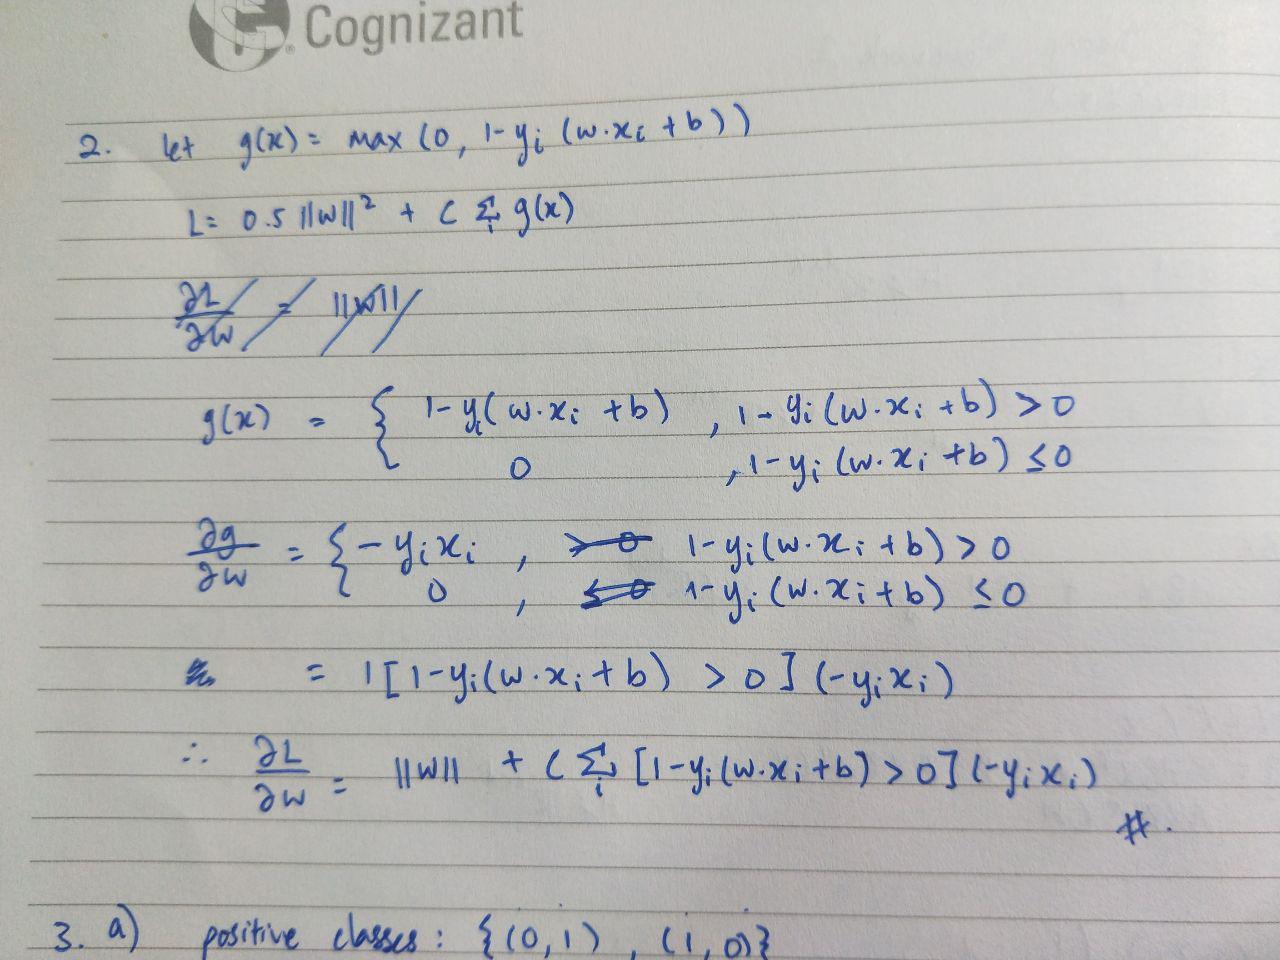 Cognizant
2. let g(x) = max (0, 1-yᵢ (w·xᵢ + b))
L = 0.5 ||w||² + C Σᵢ g(x)
∂L/∂w = ||w||
g(x) = { 1-yᵢ(w·xᵢ + b) , 1-yᵢ(w·xᵢ + b) > 0
0 , 1-yᵢ(w·xᵢ + b) ≤ 0
∂g/∂w = { -yᵢxᵢ , > 0 1-yᵢ(w·xᵢ + b) > 0
0 , ≤ 0 1-yᵢ(w·xᵢ + b) ≤ 0
= 1[1-yᵢ(w·xᵢ + b) > 0] (-yᵢxᵢ)
∴ ∂L/∂w = ||w|| + C Σᵢ [1-yᵢ(w·xᵢ + b) > 0] (-yᵢxᵢ)
#.
3. a) positive classes: {(0,1), (1,0)}